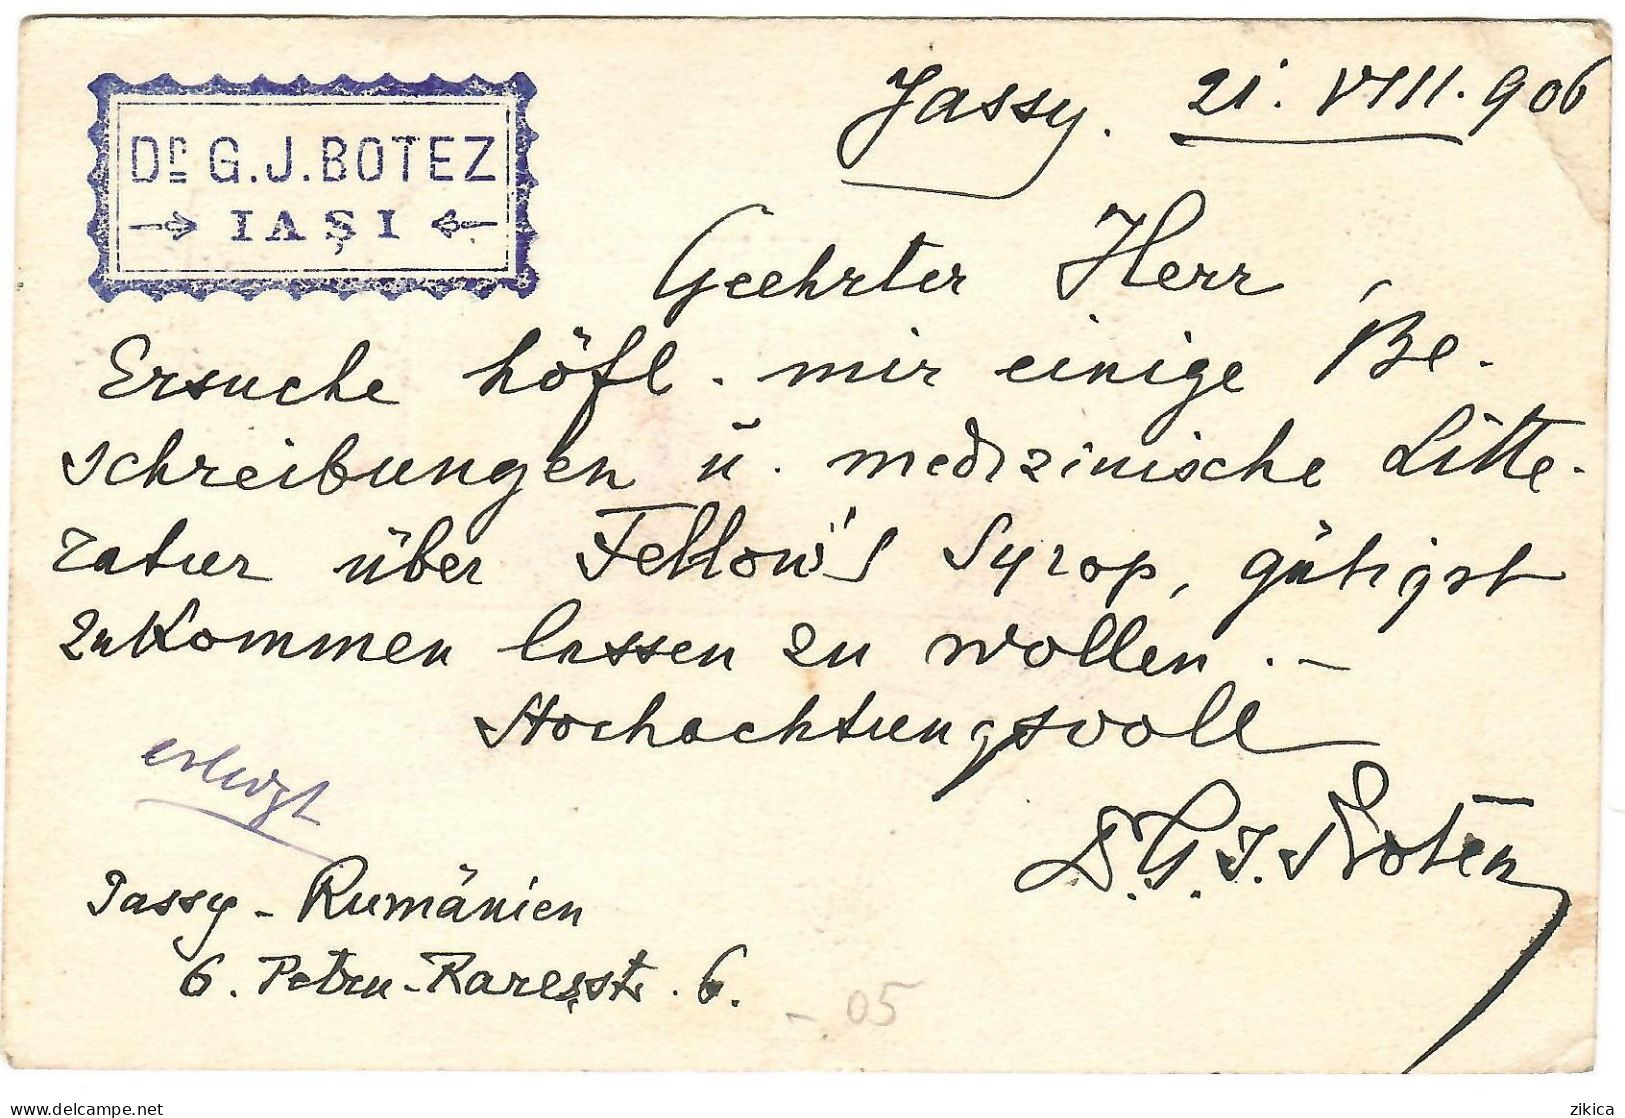 Dr G. J. BOTEZ
IAȘI
Jassy. 21. VIII. 906
Geehrter Herr,
Ersuche höfl. mir einige Be-
schreibungen u. medizinische Litte-
ratur über Fellow's Syrop, gütigst
zukommen lassen zu wollen. –
Hochachtungsvoll
erledigt
D. G. I. Botez
Jassy - Rumänien
6. Petru-Rareșstr. 6.
- 05
zikica